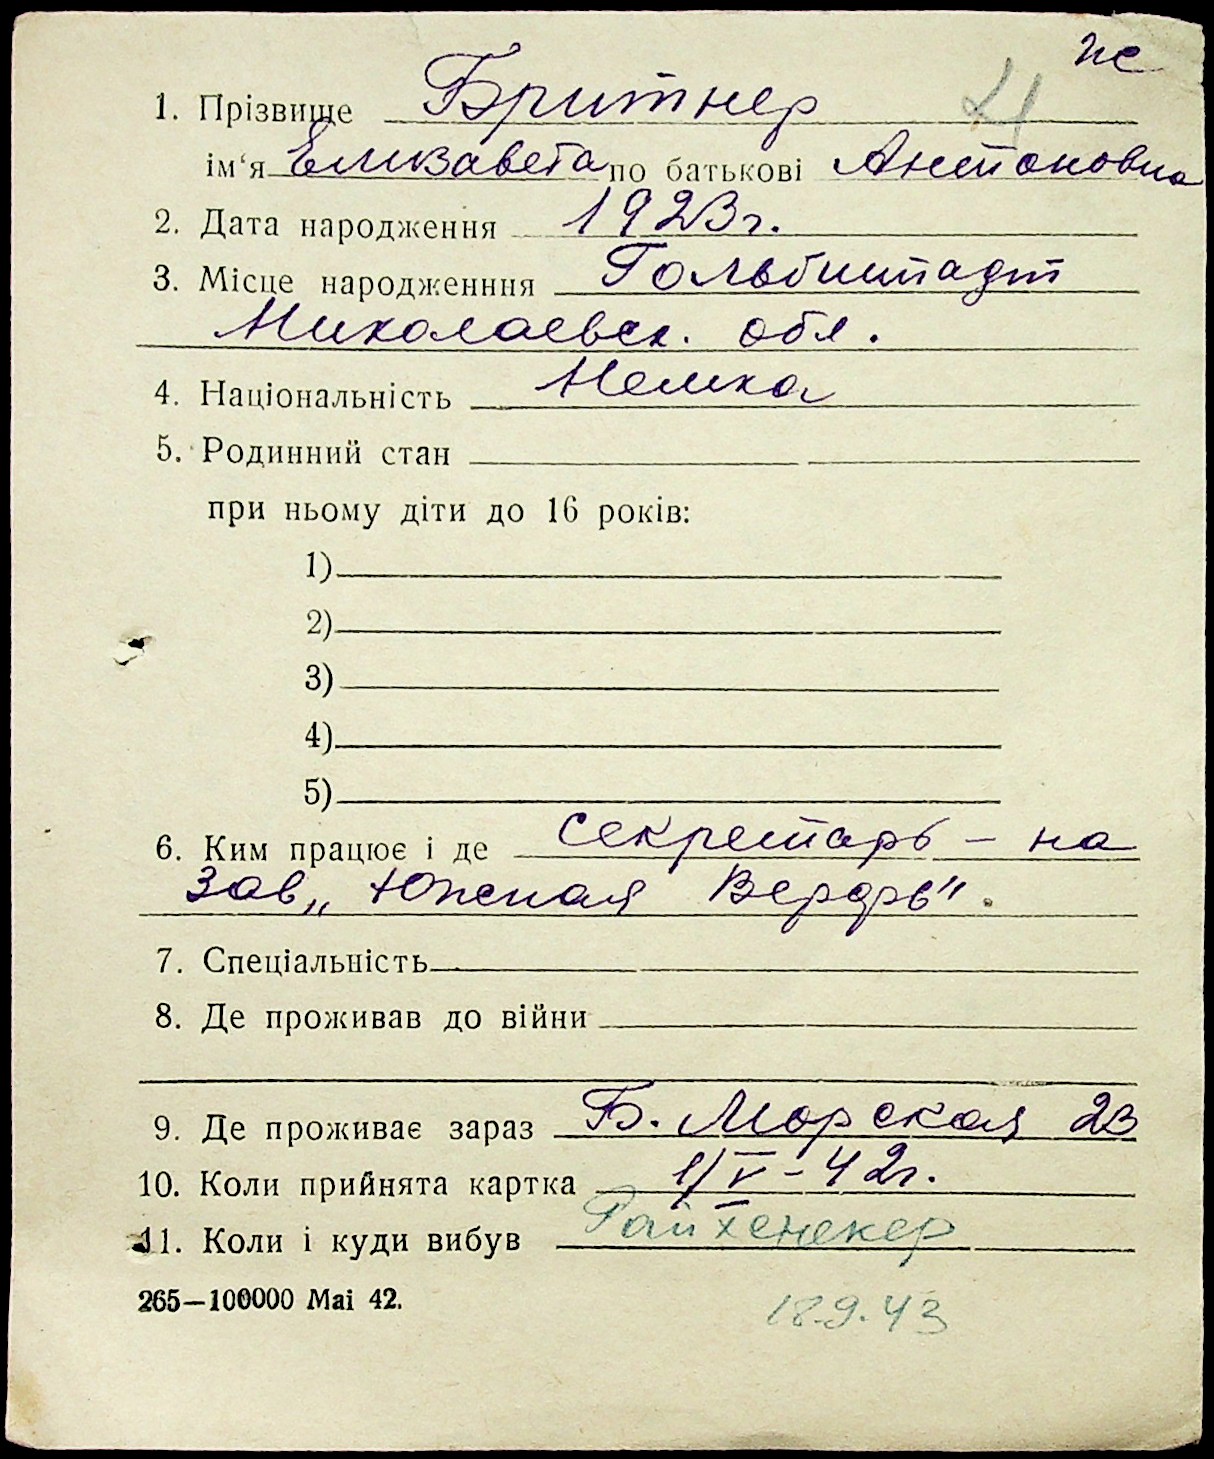 же
1. Прізвище Бритнер
ім‘я Елизавета по батькові Антоновна
2. Дата народження 1923г.
3. Місце народженння Гольбштадт
Николаевск. обл.
4. Національність Немка
5. Родинний стан
при ньому діти до 16 років:
1)
2)
3)
4)
5)
6. Ким працює і де секретарь – на
Зав „Южная Верфь".
7. Спеціальність
8. Де проживав до війни
9. Де проживає зараз Б. Морская 23
10. Коли прийнята картка 1/V – 42г.
11. Коли і куди вибув
265—100000 Mai 42.
18.9.43